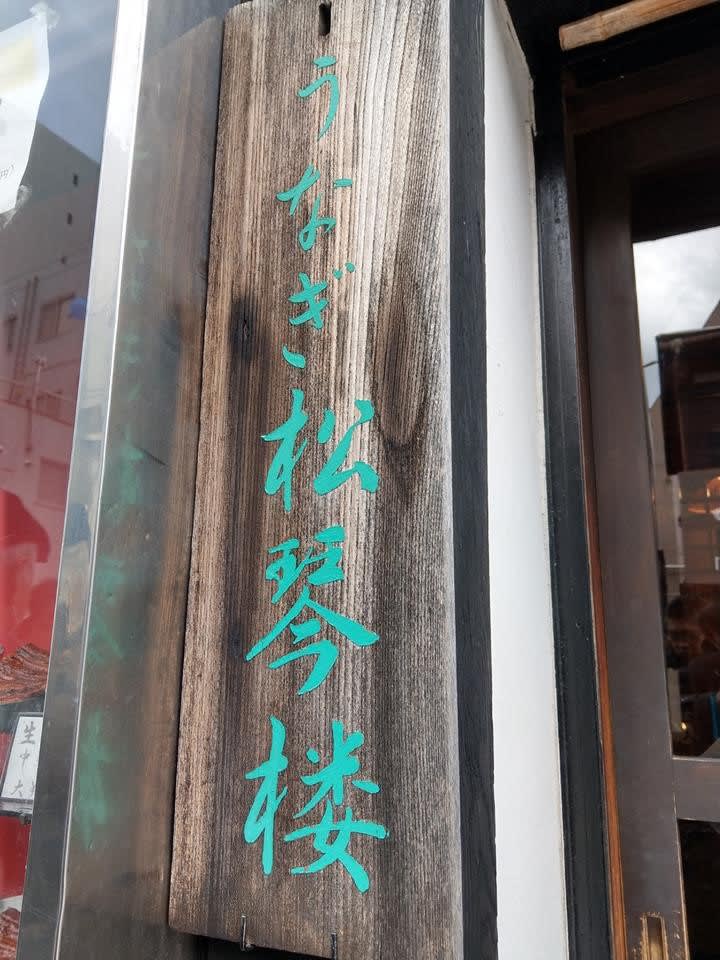 うなぎ松琴楼
生
中
大
円)